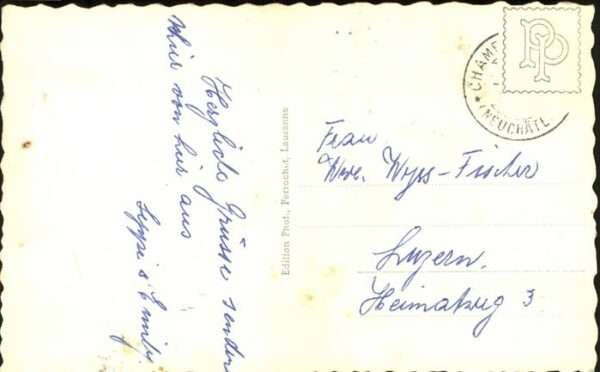 Herzliche Grüsse senden
wir von hier aus
Seppi & Emily
Edition Phot. Perrochet, Lausanne
PP
CHAMP
(NEUCHATL
Frau
Wwe. Wyss-Fischer
Luzern.
Heimatweg 3